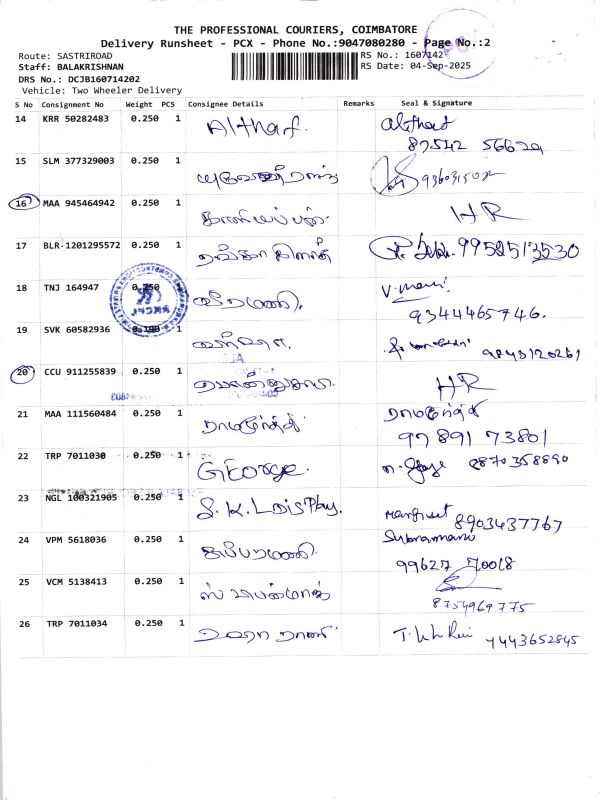 THE PROFESSIONAL COURIERS, COIMBATORE
Delivery Runsheet - PCX - Phone No.:9047080280 - Page No.:2
Route: SASTRIROAD
RS No.: 1607142
Staff: BALAKRISHNAN
RS Date: 04-Sep-2025
DRS No.: DCJB160714202
Vehicle: Two Wheeler Delivery
S No Consignment No Weight PCS Consignee Details Remarks Seal & Signature
14 KRR 50282483 0.250 1 Althaf. Althaf
87542 56629
15 SLM 377329003 0.250 1
16 MAA 945464942 0.250 1 HR
17 BLR-1201295572 0.250 1 9958513530
18 TNJ 164947 0.250 வீரமணி. V. Mani
9344465746.
19 SVK 60582936 0.100 1 9843120261
20 CCU 911255839 0.250 1 HR
21 MAA 111560484 0.250 1 ராமமூர்த்தி ராமமூர்த்தி
97891 73801
22 TRP 7011030 0.250 1 GEorge. 9870358890
23 NGL 100321905 0.250 1 S.K. LDisPlay. 8903437767
24 VPM 5618036 0.250 1 சுப்பரமணி Subramani
99627 70018
25 VCM 5138413 0.250 1
8754969775
26 TRP 7011034 0.250 1 உஷா ராணி 9443652845